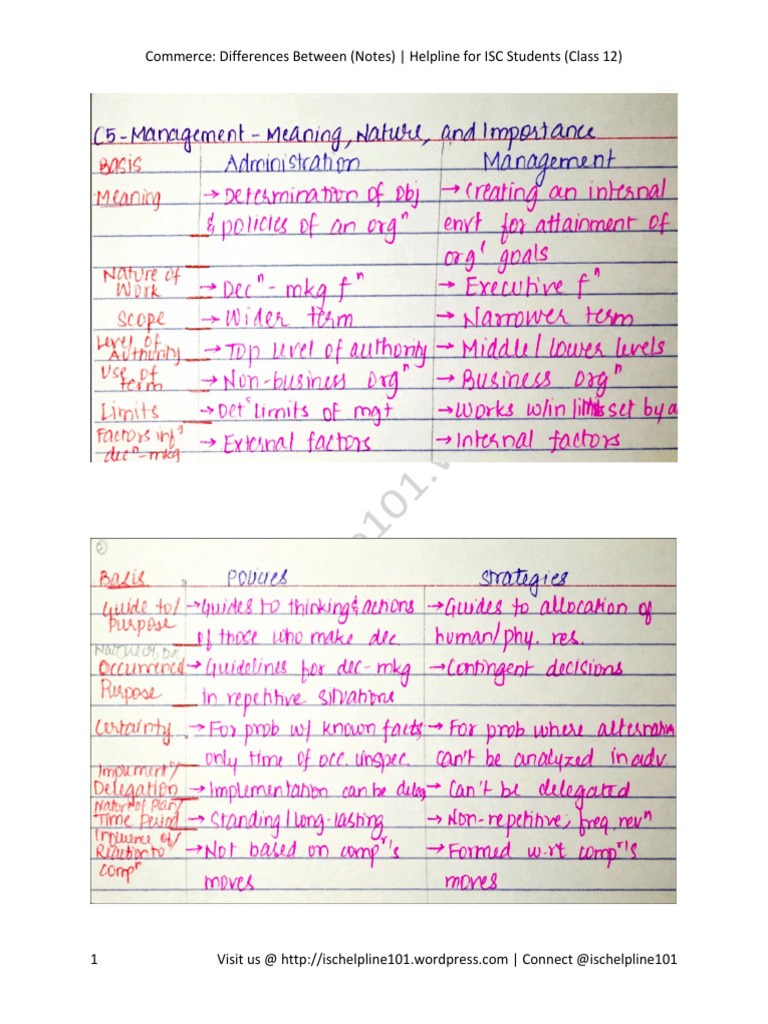 Commerce: Differences Between (Notes) | Helpline for ISC Students (Class 12)
C5-Management - Meaning, Nature, and Importance
Basis Administration Management
Meaning → Determination of Obj → Creating an internal
& policies of an orgⁿ envt for attainment of
orgˡ goals
Nature of
Work → Decⁿ- mkg fⁿ → Executive fⁿ
Scope → Wider term → Narrower term
Level of
Authority → Top level of authority → Middle/lower levels
Use of
term → Non-business orgⁿ → Business orgⁿ
Limits → Detˢ limits of mgt → Works w/in limits set by a
Factors infᵍ
decⁿ-mkg → External factors → Internal factors
101.w
2
Basis Policies Strategies
Guide to/ → Guides to thinking & actions → Guides to allocation of
Purpose of those who make dec human/phy. res.
Nature of
Occurrence → Guidelines for dec-mkg → Contingent decisions
Purpose in repetitive situations
Certainty → For prob w/ known facts → For prob where alternativ
only time of occ. unspec. can't be analyzed in adv.
Implement/
Delegation → Implementation can be deleg → Can't be delegated
Nature of Plan/
Time Period → Standing/long-lasting → Non-repetitive, freq. revⁿ
Influence of/
Reaction to → Not based on compʳ's → Formed w.r.t compʳ's
compʳ moves moves
1 Visit us @ http://ischelpline101.wordpress.com | Connect @ischelpline101